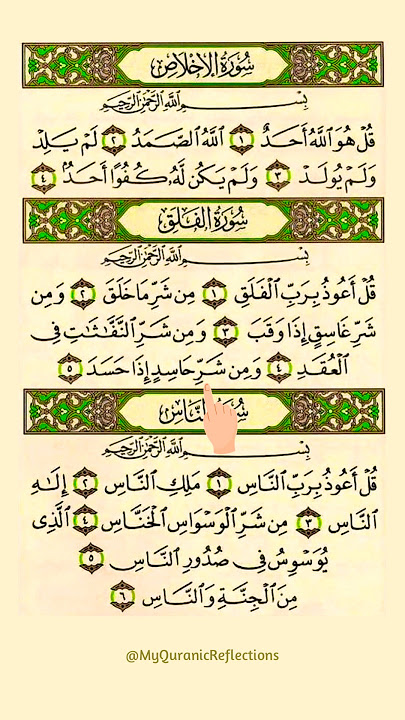 سُورَةُ الإِخْلَاصِ
بِسْمِ اللَّهِ الرَّحْمَٰنِ الرَّحِيمِ
قُلْ هُوَ اللَّهُ أَحَدٌ ١ اللَّهُ الصَّمَدُ ٢ لَمْ يَلِدْ
وَلَمْ يُولَدْ ٣ وَلَمْ يَكُن لَّهُ كُفُوًا أَحَدٌ ٤
سُورَةُ الْفَلَقِ
بِسْمِ اللَّهِ الرَّحْمَٰنِ الرَّحِيمِ
قُلْ أَعُوذُ بِرَبِّ الْفَلَقِ ١ مِن شَرِّ مَا خَلَقَ ٢ وَمِن
شَرِّ غَاسِقٍ إِذَا وَقَبَ ٣ وَمِن شَرِّ النَّفَّٰثَٰتِ فِي
الْعُقَدِ ٤ وَمِن شَرِّ حَاسِدٍ إِذَا حَسَدَ ٥
سُورَةُ النَّاسِ
بِسْمِ اللَّهِ الرَّحْمَٰنِ الرَّحِيمِ
قُلْ أَعُوذُ بِرَبِّ النَّاسِ ١ مَلِكِ النَّاسِ ٢ إِلَٰهِ
النَّاسِ ٣ مِن شَرِّ الْوَسْوَاسِ الْخَنَّاسِ ٤ الَّذِي
يُوَسْوِسُ فِي صُدُورِ النَّاسِ ٥
مِنَ الْجِنَّةِ وَالنَّاسِ ٦
@MyQuranicReflections